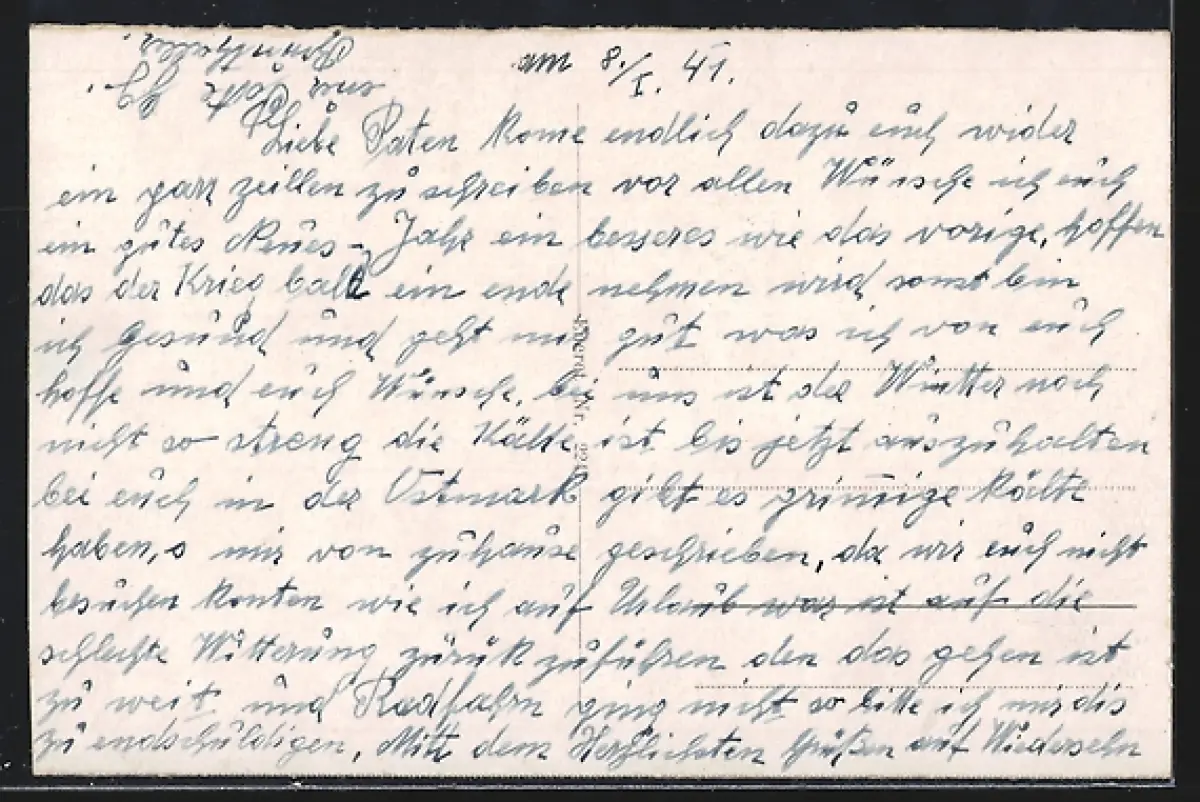 am 8./I. 41.
Liebe Paten kome endlich dazu euch wider
ein parr zeillen zu schreiben vor allen Wünsche ich euch
ein gutes Neues Jahr ein besseres wie das vorige, hoffen
das der Krieg balt ein ende nehmen wird sonst bin
ich Gesund und geht mir gut was ich von euch
hoffe und euch Wünsche, bei uns ist der Wintter noch
nicht so streng die Kälte ist bis jetzt auszuhalten
bei euch in der Ostmark gibt es grimige Kälte
haben, s mir von zuhause geschrieben, da wir euch nicht
besuchen konten wie ich auf Urlaub war ist auf die
schlechte Witterung zurük zuführen den das gehen ist
zu weit und Radfahrn ging nicht so bitte ich mir dis
zu endschuldigen, Mitt dem Herzlichsten Grüßen auf Wiedersehn